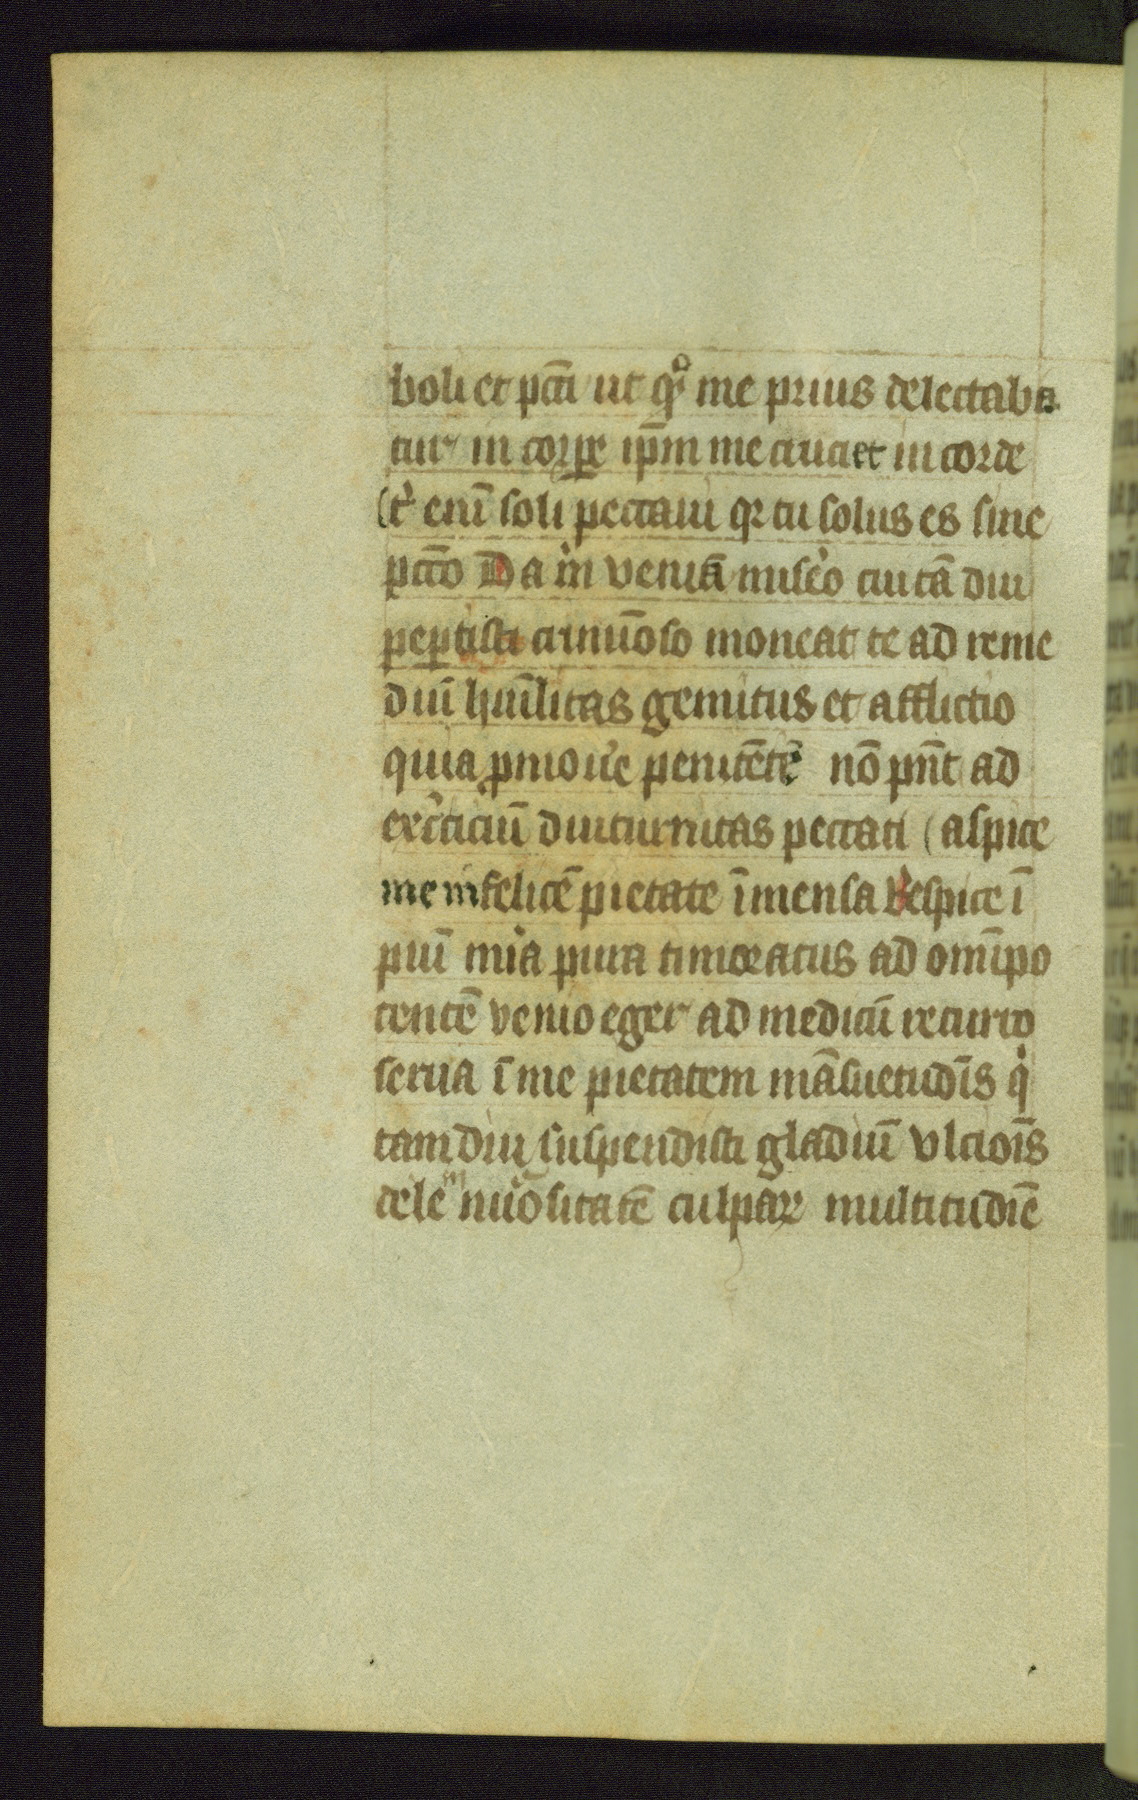 boli et pctī ut qͦ me prius delectaba
tur in corꝑe ip̄m me cruciet in corde
t' enī soli peccaui qꝛ tu solus es sine
pctō Da m̓ veniā mis'o cui tā diu
peꝑcisti criminōso moneat te ad reme
diū hūilitas gemitus et afflictio
quia ꝓmoue penitētē nō pn̄t ad
exc̓iciū diuturnitas peccati aspice
me infelicē pietate īmensa Respice ī
piū mīa pura timoratus ad omīpo
tentē venio eger ad medicū recurro
serua ī me pietatem māsuetudīs q̓
tam diu suspendisti gladiū vlcioīs
dele nūositatē culpaꝝ multitudīē